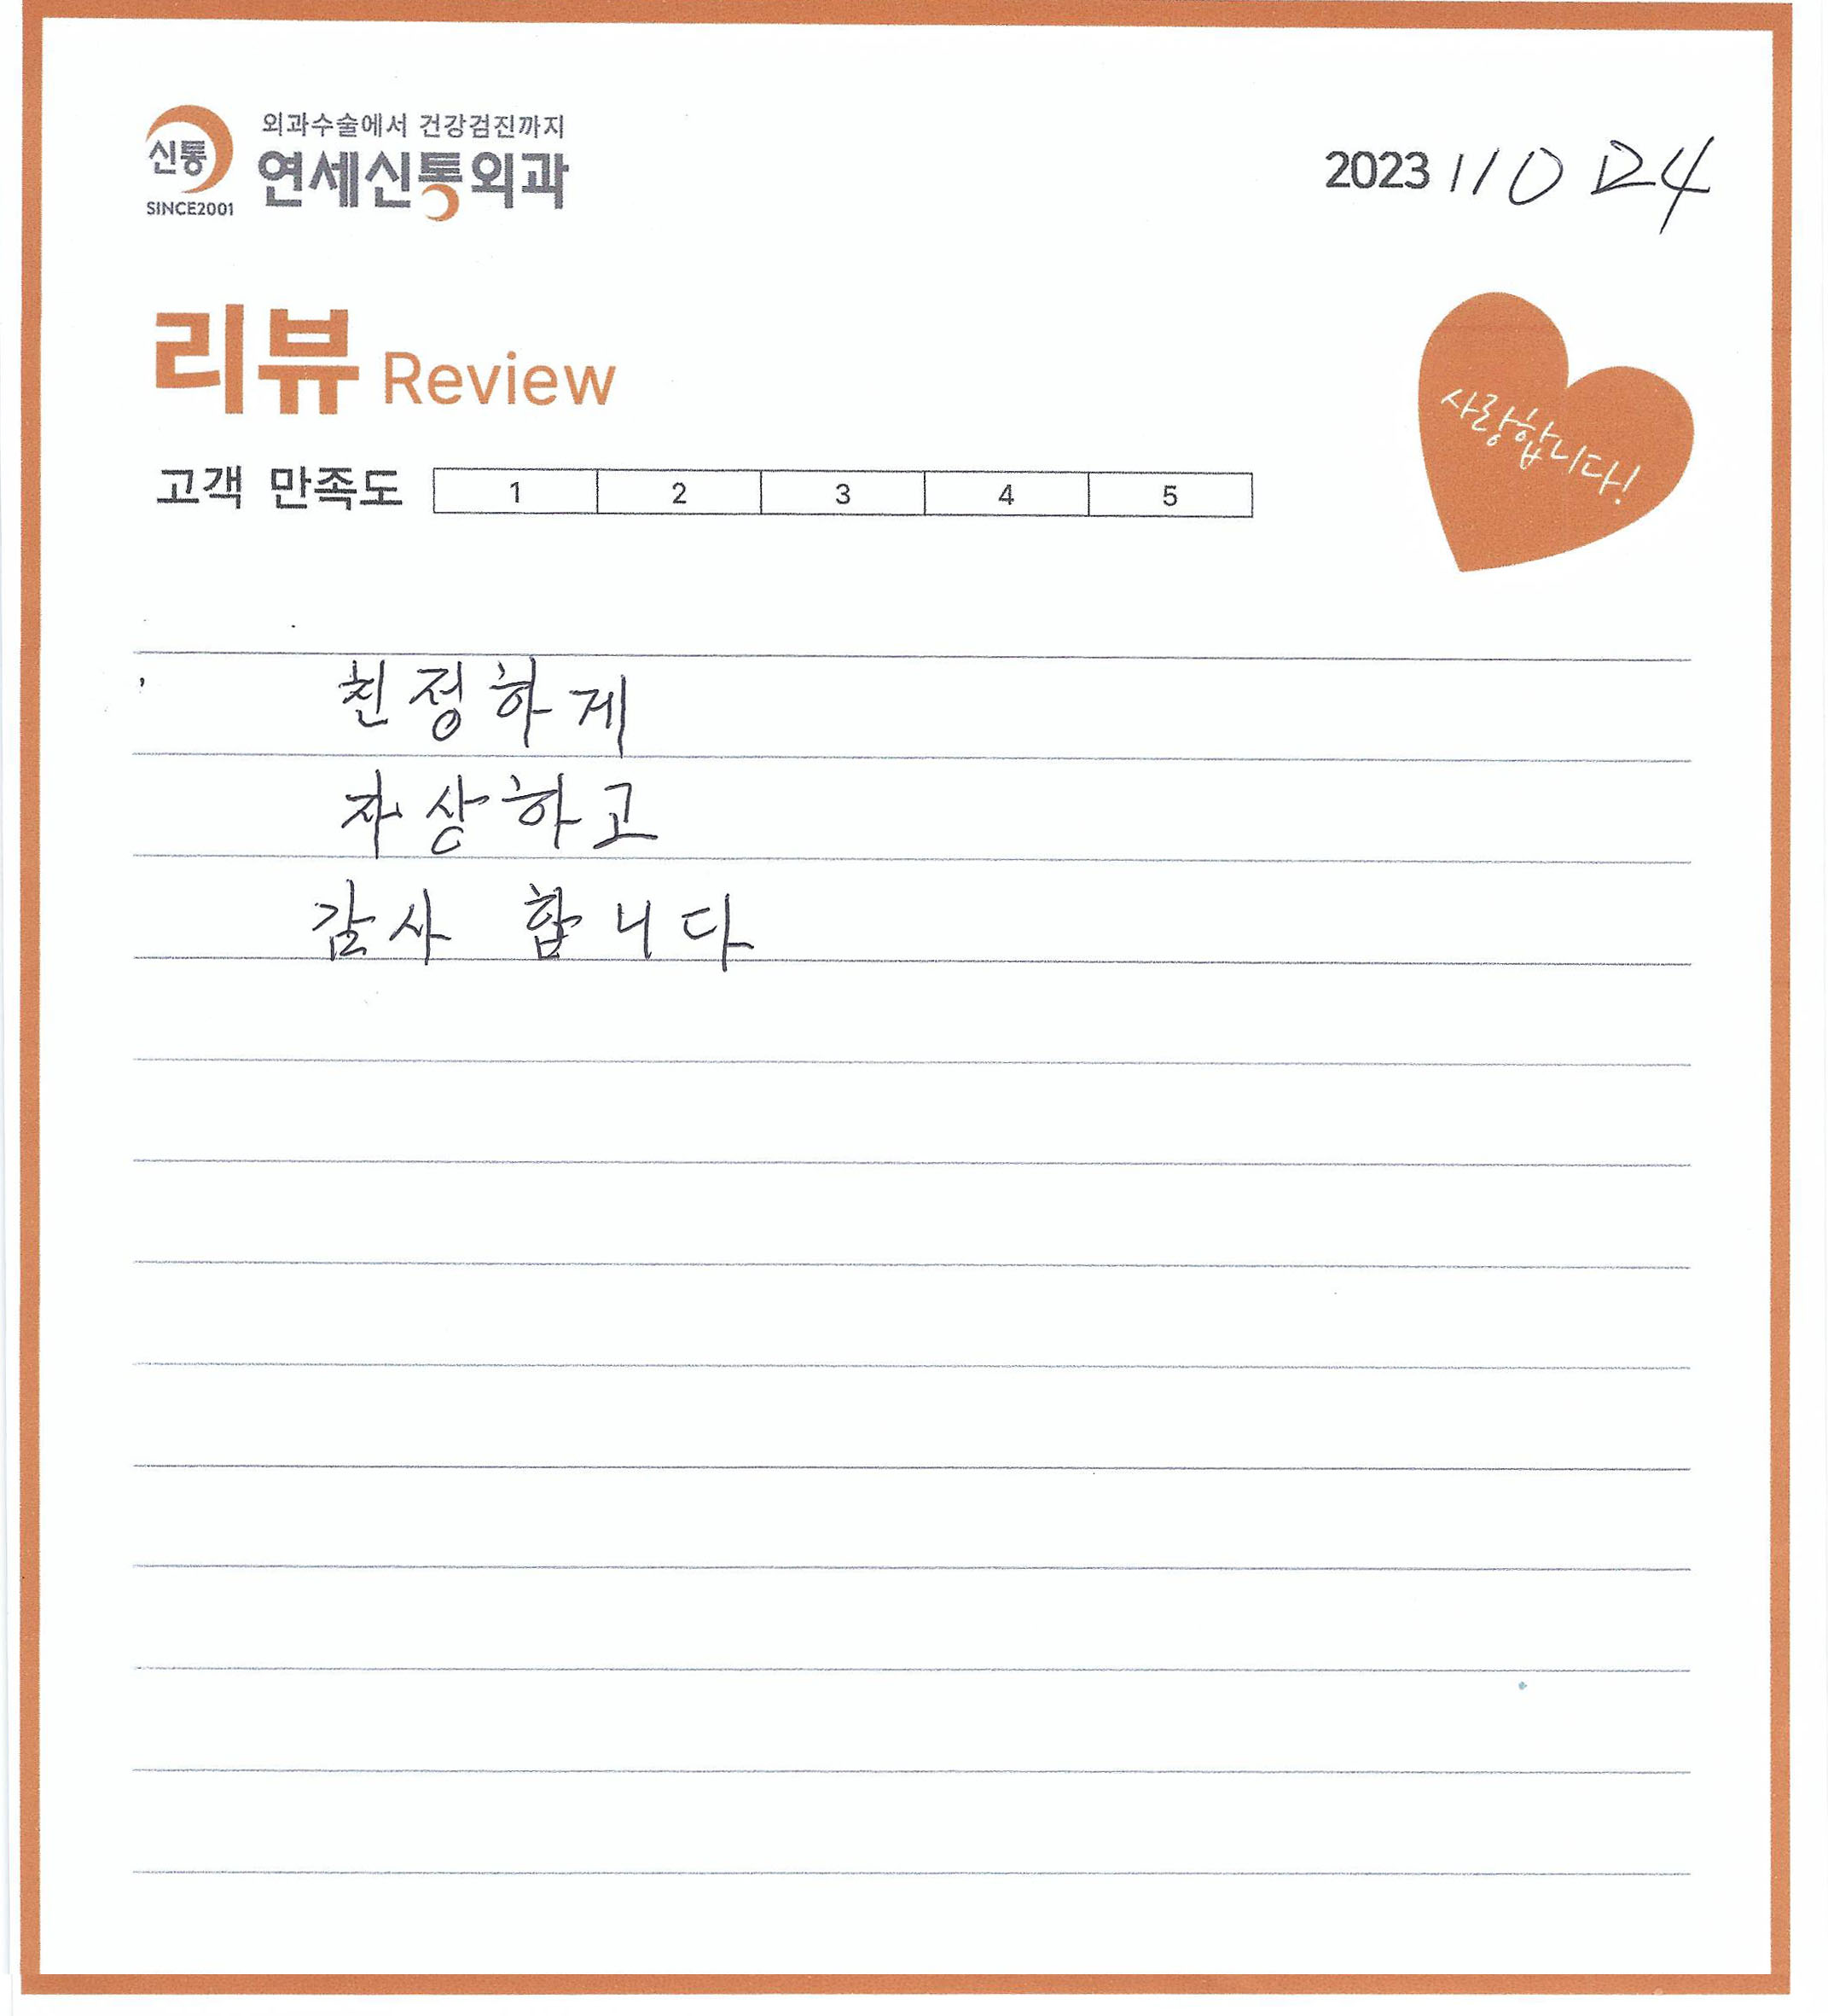 외과수술에서 건강검진까지
신통 연세신통외과
SINCE2001
2023 110 24
리뷰 Review
사랑합니다!
고객 만족도 1 2 3 4 5
친정하게
자상하고
감사 합니다